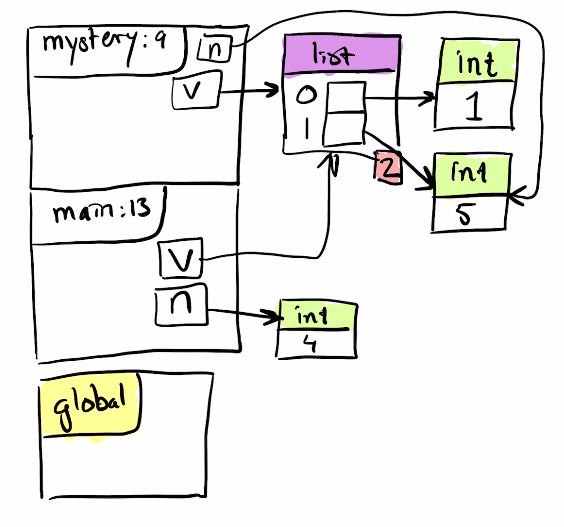 mystery:9 n
v
list
0
1
2
int
1
int
5
main:13
v
n
int
4
global